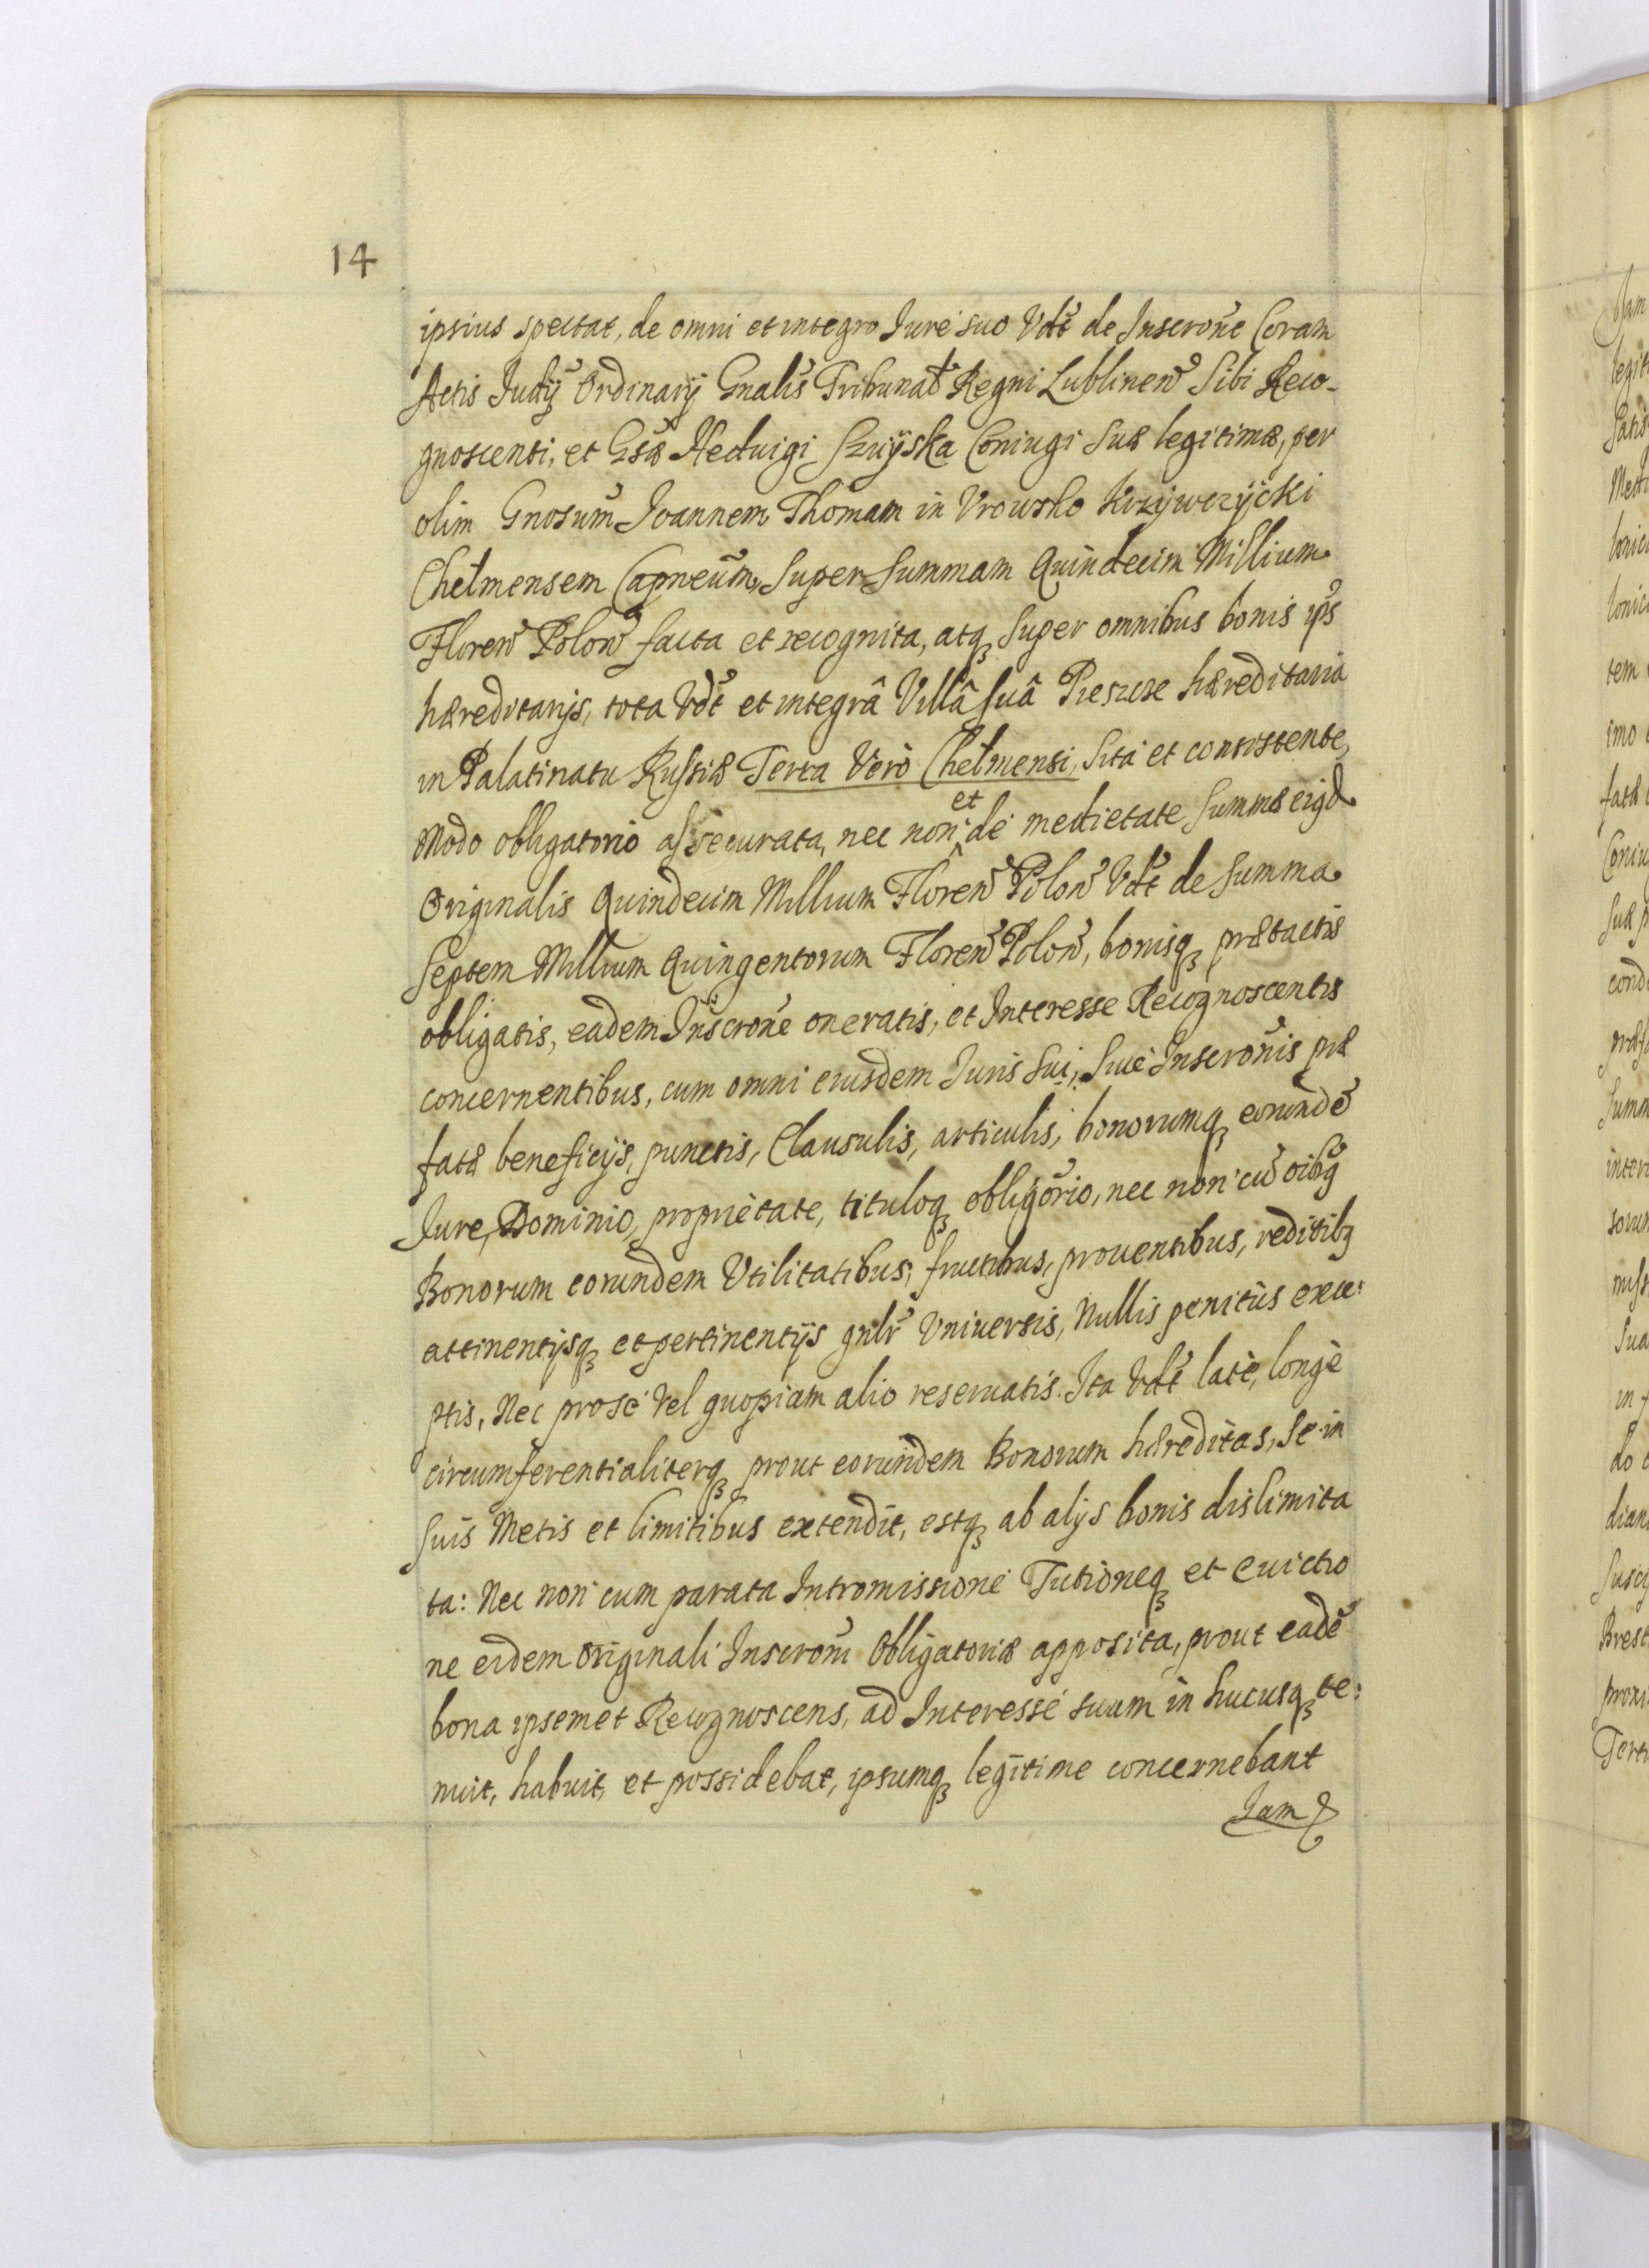 14
ipsius spectat, de omni et integro Jure suo Vdt̃ de Inscrõne Coram
Actis Judỹ Ordinarij Gnalis̃ Tribunal̃ Regni Lublineñ Sibi Reco-
gnoscenti, et Gsæ̃ Heduigi Szuÿska Coniugi Suæ legitimæ, per
olim Gnosum̃ Joannem Thomam in Vrowsko Krzywczÿcki
Chelmensem Capneũm, Super Summam Quindecim Millium
Floreñ Poloñ facta et recognita, atqꝫ Super omnibus bonis ip̃s
hæreditarijs, tota Vdt̃ et integrâ Villâ suâ Piesucze hæreditaria
in Palatinatu Russiæ Terra Verò Chelmensi, Sita et consistente,
Modo obligatorio assecurata, nec non et de medietate Summæ eigd
Originalis Quindecim Millium Floreñ Poloñ Vdt̃ de Summa
Septem Millium Quingentorum Floreñ Poloñ, bonisqꝫ prætactis
obligatis, eadem Inscrõne oneratis, et Interesse Recognoscentis
concernentibus, cum omni eiusdem Juris Sui, Siue Inscrõnis præ
fatæ beneficijs, punctis, Clausulis, articulis, bonorumqꝫ eorundẽ
Jure, Dominio, proprietate, tituloqꝫ obligõrio, nec non cũ oĩbꝫ
Bonorum eorundem Vtilitatibus, fructibus, prouentibus, reditibꝫ
attinentijsqꝫ et pertinentijs gnlr̃ Vniuersis, Nullis penitùs exce:
ptis, Nec pro se Vel quopiam alio reseruatis. Ita Vdt̃ latè, longè
circumferentialiterqꝫ prout eorundem Bonorum hæreditas, Se in
Suis Metis et limitibus extendit, estqꝫ ab alijs bonis dislimita
ta: Nec non cum parata Intromissione Tutioneqꝫ et euictio
ne eidem Originali Inscrõni Obligatoriæ apposita, prout eadẽ
bona ipsemet Recognoscens, ad Interesse suum in hucusqꝫ te:
nuit, habuit, et possidebat, ipsumqꝫ legitime concernebant
Jam